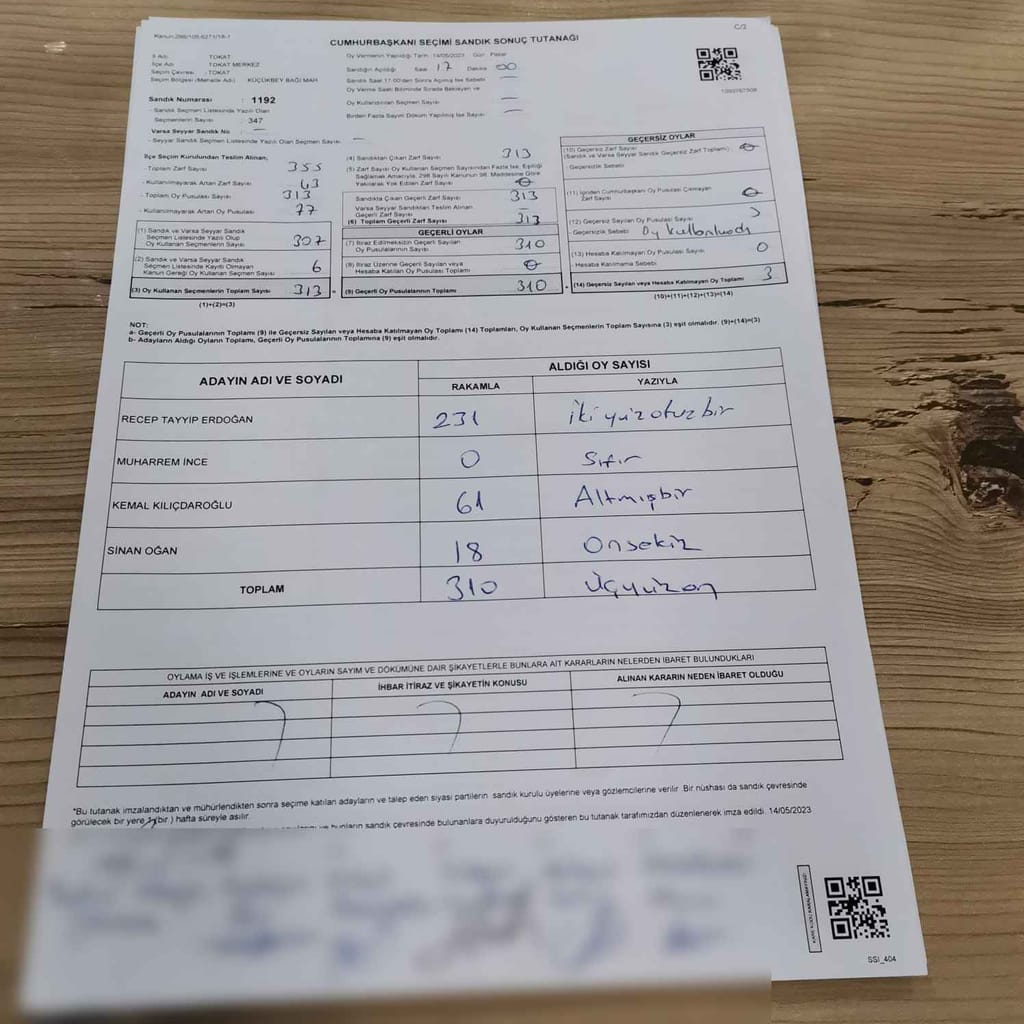 Kanun:298/105-6271/18-1
C/2
CUMHURBAŞKANI SEÇİMİ SANDIK SONUÇ TUTANAĞI
İl Adı : TOKAT
İlçe Adı : TOKAT MERKEZ
Seçim Çevresi : TOKAT
Seçim Bölgesi (Mahalle Adı) : KÜÇÜKBEY BAĞI MAH
Oy Vermenin Yapıldığı Tarih : 14/05/2023 Gün : Pazar
Sandığın Açıldığı Saat 17 Dakika 00
Sandık Saat 17:00'den Sonra Açılmış İse Sebebi —
Oy Verme Saati Bitiminde Sırada Bekleyen ve
Oy Kullandırılan Seçmen Sayısı —
Birden Fazla Sayım Döküm Yapılmış İse Sayısı —
Sandık Numarası : 1192
- Sandık Seçmen Listesinde Yazılı Olan
Seçmenlerin Sayısı : 347
Varsa Seyyar Sandık No : —
- Seyyar Sandık Seçmen Listesinde Yazılı Olan Seçmen Sayısı —
İlçe Seçim Kurulundan Teslim Alınan;
- Toplam Zarf Sayısı 355
- Kullanılmayarak Artan Zarf Sayısı 43
- Toplam Oy Pusulası Sayısı 313
- Kullanılmayarak Artan Oy Pusulası 77
(1) Sandık ve Varsa Seyyar Sandık
Seçmen Listesinde Yazılı Olup
Oy Kullanan Seçmenlerin Sayısı 307
(2) Sandık ve Varsa Seyyar Sandık
Seçmen Listesinde Kayıtlı Olmayan
Kanun Gereği Oy Kullanan Seçmen Sayısı 6
(3) Oy Kullanan Seçmenlerin Toplam Sayısı 313
(1)+(2)=(3)
(4) Sandıktan Çıkan Zarf Sayısı 313
(5) Zarf Sayısı Oy Kullanan Seçmen Sayısından Fazla İse, Eşitliği
Sağlamak Amacıyla, 298 Sayılı Kanunun 98. Maddesine Göre
Yakılarak Yok Edilen Zarf Sayısı 0
Sandıkta Çıkan Geçerli Zarf Sayısı 313
Varsa Seyyar Sandıktan Teslim Alınan
Geçerli Zarf Sayısı —
(6) Toplam Geçerli Zarf Sayısı 313
GEÇERLİ OYLAR
(7) İtiraz Edilmeksizin Geçerli Sayılan
Oy Pusulalarının Sayısı 310
(8) İtiraz Üzerine Geçerli Sayılan veya
Hesaba Katılan Oy Pusulası Toplamı 0
(9) Geçerli Oy Pusulalarının Toplamı 310
GEÇERSİZ OYLAR
(10) Geçersiz Zarf Sayısı
(Sandık ve Varsa Seyyar Sandık Geçersiz Zarf Toplamı) 0
Geçersizlik Sebebi:
(11) İçinden Cumhurbaşkanı Oy Pusulası Çıkmayan
Zarf Sayısı 0
(12) Geçersiz Sayılan Oy Pusulası Sayısı
- Geçersizlik Sebebi Oy
(13) Hesaba Katılmayan Oy Pusulası Sayısı 0
- Hesaba Katılmama Sebebi
(14) Geçersiz Sayılan veya Hesaba Katılmayan Oy Toplamı 3
(10)+(11)+(12)+(13)=(14)
NOT:
a- Geçerli Oy Pusulalarının Toplamı (9) ile Geçersiz Sayılan veya Hesaba Katılmayan Oy Toplamı (14) Toplamları, Oy Kullanan Seçmenlerin Toplam Sayısına (3) eşit olmalıdır. (9)+(14)=(3)
b- Adayların Aldığı Oyların Toplamı, Geçerli Oy Pusulalarının Toplamına (9) eşit olmalıdır.
ADAYIN ADI VE SOYADI
ALDIĞI OY SAYISI
RAKAMLA YAZIYLA
RECEP TAYYİP ERDOĞAN 231 İkiyüzotuzbir
MUHARREM İNCE 0 Sıfır
KEMAL KILIÇDAROĞLU 61 Altmışbir
SİNAN OĞAN 18 Onsekiz
TOPLAM 310 Üçyüzon
OYLAMA İŞ VE İŞLEMLERİNE VE OYLARIN SAYIM VE DÖKÜMÜNE DAİR ŞİKAYETLERLE BUNLARA AİT KARARLARIN NELERDEN İBARET BULUNDUKLARI
ADAYIN ADI VE SOYADI İHBAR İTİRAZ VE ŞİKAYETİN KONUSU ALINAN KARARIN NEDEN İBARET OLDUĞU
*Bu tutanak imzalandıktan ve mühürlendikten sonra seçime katılan adayların ve talep eden siyasi partilerin sandık kurulu üyelerine veya gözlemcilerine verilir. Bir nüshası da sandık çevresinde
görülecek bir yere (bir) hafta süreyle asılır.
ve bunların sandık çevresinde bulunanlara duyurulduğunu gösteren bu tutanak tarafımızdan düzenlenerek imza edildi. 14/05/2023
SSI_404